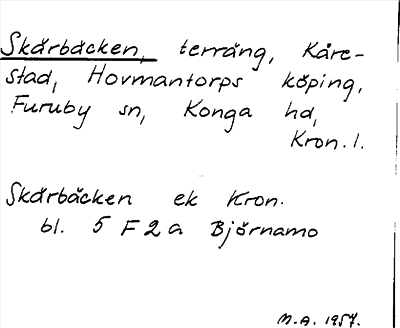 Skärbäcken, terräng, Kåre-
stad, Hovmantorps köping,
Furuby sn, Konga hd,
Kron. l.
Skärbäcken ek Kron.
bl. 5 F 2 a Björnamo
M.A. 1957.